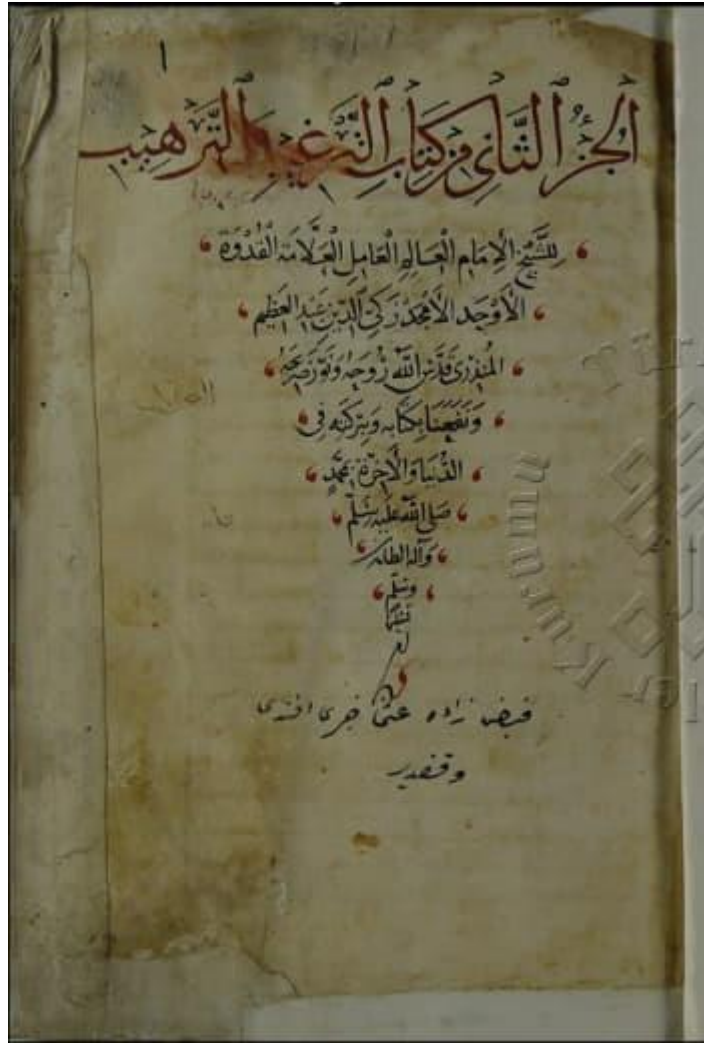 ١
الجُزْءُ الثَّانِى مِنْ كِتَابِ التَّرْغِيبِ وَالتَّرْهِيبِ
لِلشَّيْخِ الْإِمَامِ الْعَالِمِ الْعَامِلِ الْعَلَّامَةِ الْقُدْوَةِ
الْأَوْحَدِ الْأَمْجَدِ زَكِىِّ الدِّينِ عَبْدِ الْعَظِيمِ
الْمُنْذِرِى قَدَّسَ اللهُ رُوحَهُ وَنَوَّرَ ضَرِيحَهُ
وَنَفَعَنَا بِكِتَابِهِ وَبِبَرَكَتِهِ فِى
الدُّنْيَا وَالْآخِرَةِ بِمُحَمَّدٍ
صَلَّى اللهُ عَلَيْهِ وَسَلَّمَ
وَآلِهِ الطَّاهِرِينَ
وَسَلَّمَ
فيض زاده عثمان خيرى افندى
وقفيدر